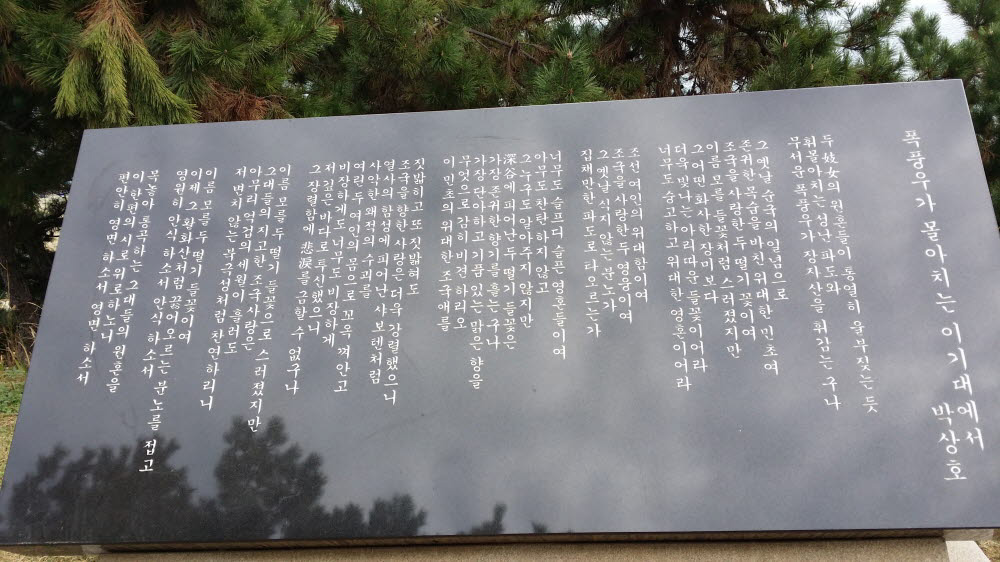 폭풍우가 몰아치는 이기대에서
박상호
두 妓女의 원혼들이 통렬히 울부짖는 듯
휘몰아치는 성난 파도와
무서운 폭풍우가 장자산을 휘감는구나
그 옛날 순국의 일념으로
존귀한 목숨을 바친 위대한 민초여
조국을 사랑한 두 떨기 꽃이여
이름 모를 들꽃처럼 스러졌지만
그 어떤 화사한 장미보다
더욱 빛나는 아리따운 들꽃이어라
너무도 숭고하고 위대한 영혼이어라
조선 여인의 위대함이여
조국을 사랑한 두 영웅이여
그 옛날 식지 않는 분노가
집채만한 파도로 타오르는가
너무도 슬프디 슬픈 영혼들이여
아무도 찬탄하지 않고
그 누구도 알아주지 않지만
深谷에 피어난 두 떨기 들꽃은
가장 존귀한 향기를 흩는구나
가장 단아하고 기품 있는 맑은 향을
무엇으로 감히 비견하리오
이 민초의 위대한 조국애를
짓밟히고 또 짓밟혀도
조국을 향한 사랑은 더욱 강렬했으니
열사의 함성에 피어난 사보텐처럼
사악한 왜적의 수괴를
여린 두 여인의 몸으로 꼬옥 껴안고
비장하게도 너무도 비장하게
저 깊은 바다로 투신했으니
그 장렬함에 悲淚를 금할 수 없구나
이름 모를 두 떨기 들꽃으로 스러졌지만
그대들의 지고한 조국사랑은
아무리 억겁의 세월이 흘러도
저 변치 않는 북극성처럼 찬연하리니
이름 모를 두 떨기 들꽃이여
이제 그 활화산처럼 끓어오르는 분노를 접고
영원히 안식 하소서 안식 하소서
목놓아 통곡하는 그대들의 원혼을
이 한 편의 시로 위로하노니
편안히 영면 하소서 영면 하소서